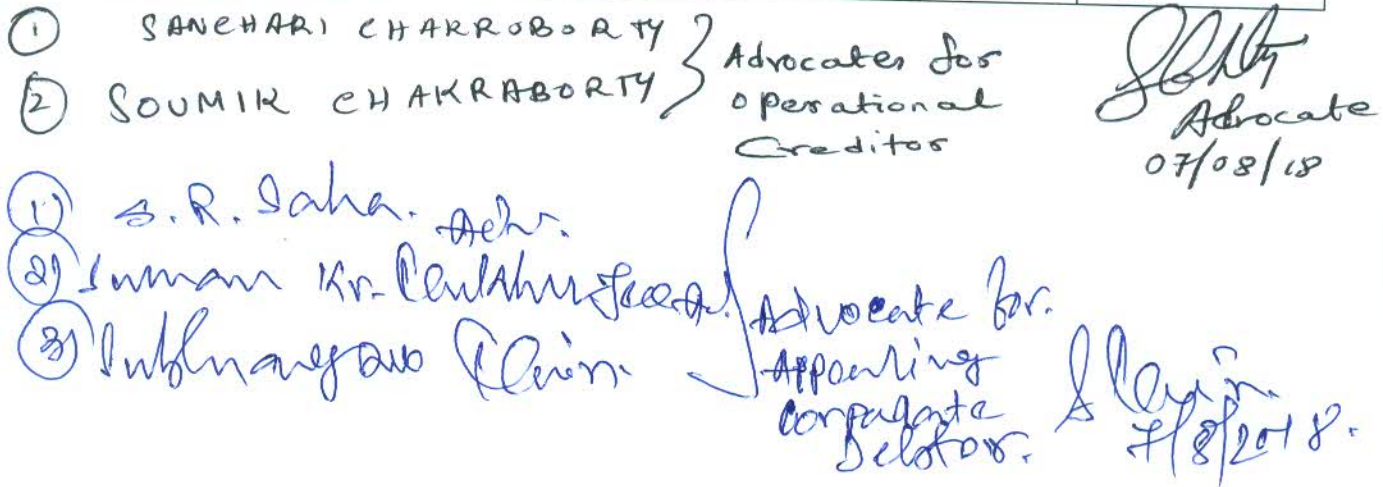 ① SANCHARI CHAKROBORTY
② SOUMIK CHAKRABORTY
Advocates for
operational
Creditor
Advocate
07/08/18
1) S.R. Saha. Adv.
2) Suman Kr.
3)
Advocate for.
Appearing
corporate
Debtor.
7/8/2018.